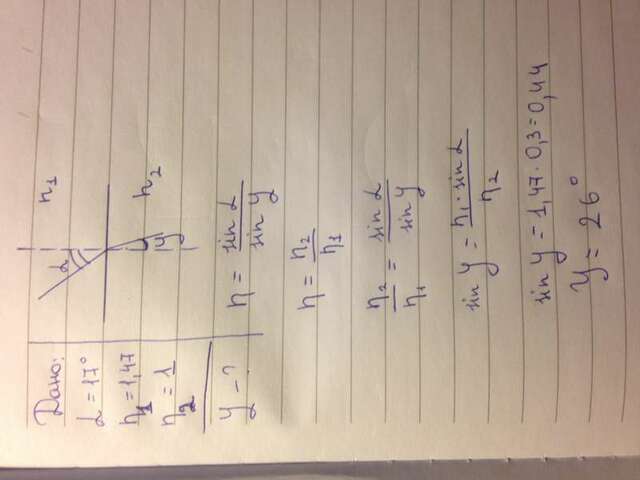 Дано:
α = 17°
n₁ = 1,47
n₂ = 1
γ - ?
α
n₁
n₂
γ
n = sin α / sin γ
n = n₂ / n₁
n₂ / n₁ = sin α / sin γ
sin γ = n₁ · sin α / n₂
sin γ = 1,47 · 0,3 = 0,44
γ = 26°